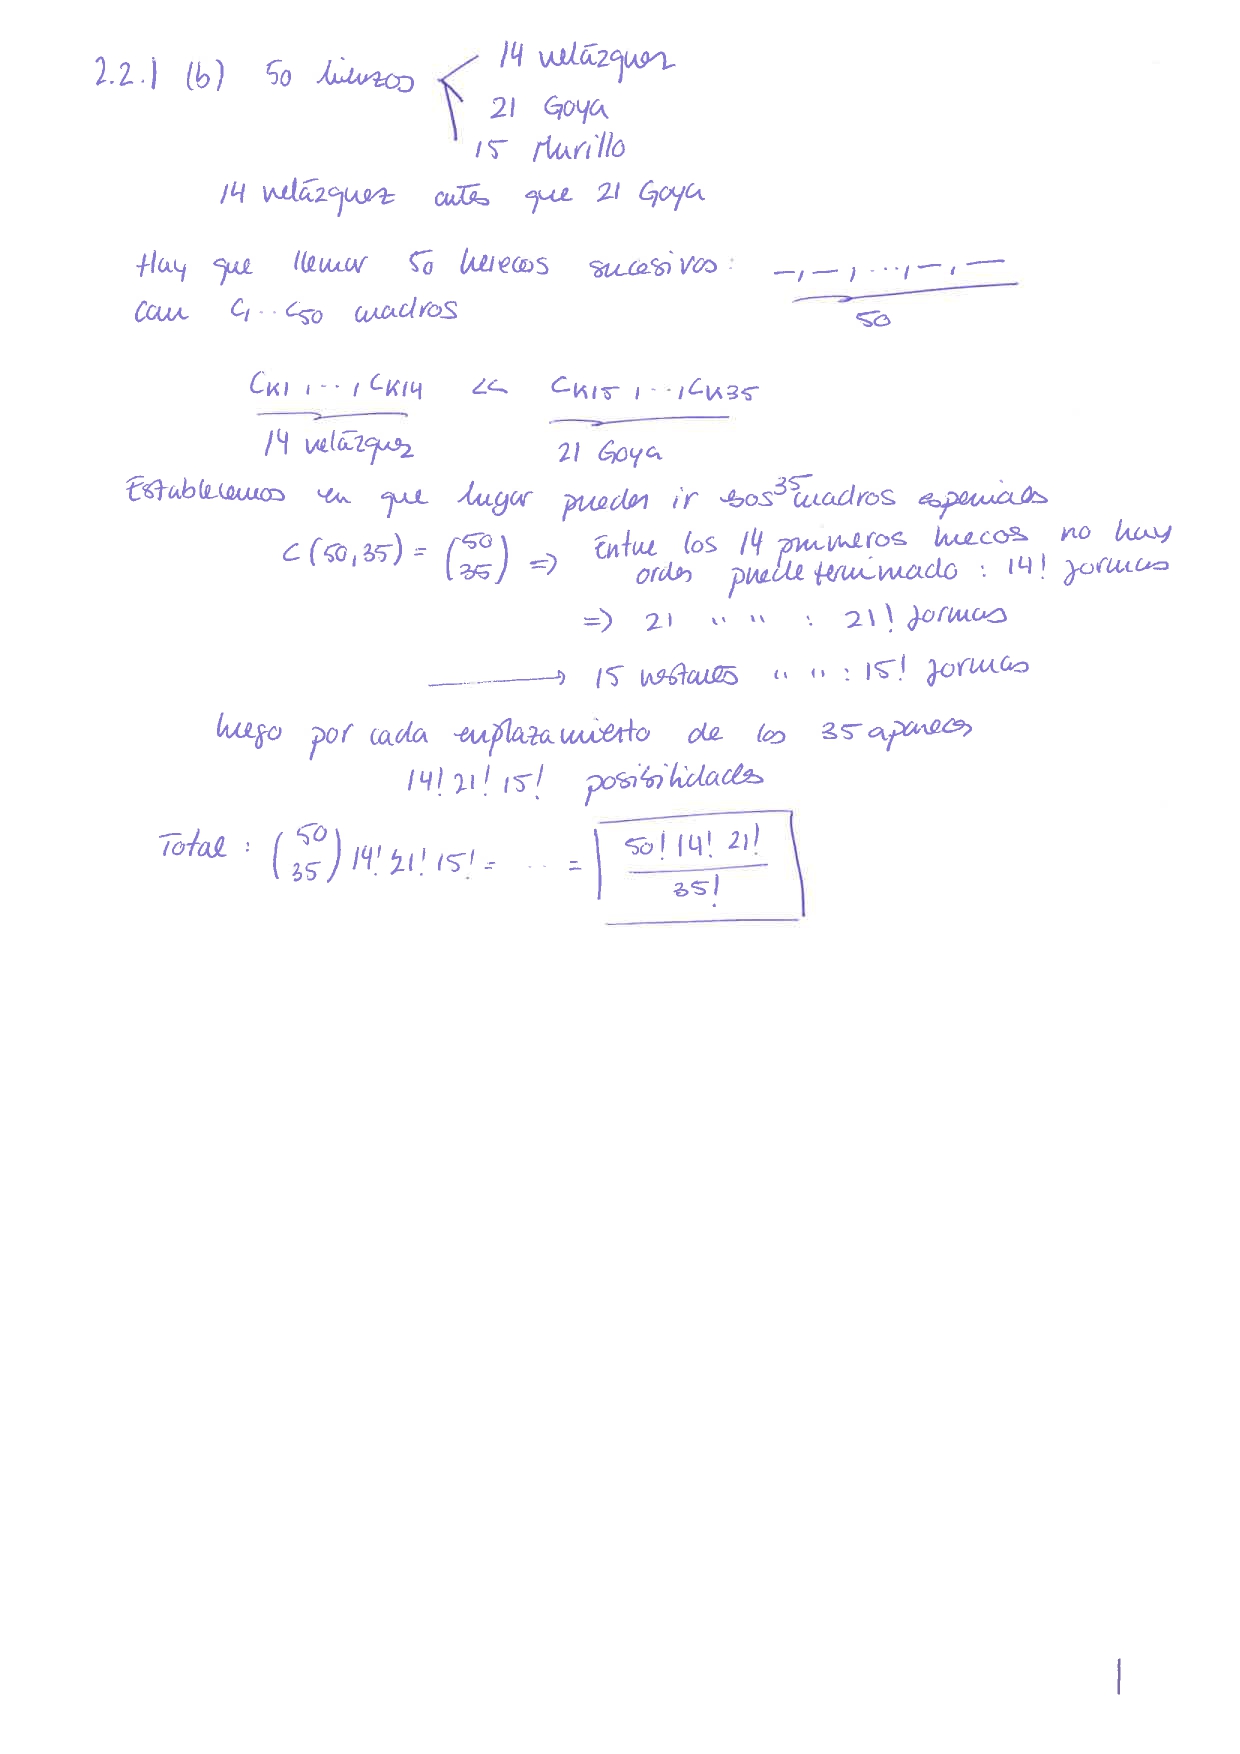 2.2.1 (b) 50 lienzos < 14 Velázquez
21 Goya
15 Murillo
14 Velázquez antes que 21 Goya
Hay que llenar 50 huecos sucesivos: _, _, ..., _, _
50
con C1 .. C50 cuadros
CK1, ..., CK14 << CK15, ..., CK35
14 Velázquez 21 Goya
Establecemos en que lugar pueden ir esos 35 cuadros especiales
C(50,35) = (50 35) => Entre los 14 primeros huecos no hay
orden predeterminado : 14! formas
=> 21 " " : 21! formas
→ 15 restantes " " : 15! formas
luego por cada emplazamiento de los 35 aparecen
14! 21! 15! posibilidades
Total : (50 35) 14! 21! 15! = ... = 50! 14! 21! / 35!
1